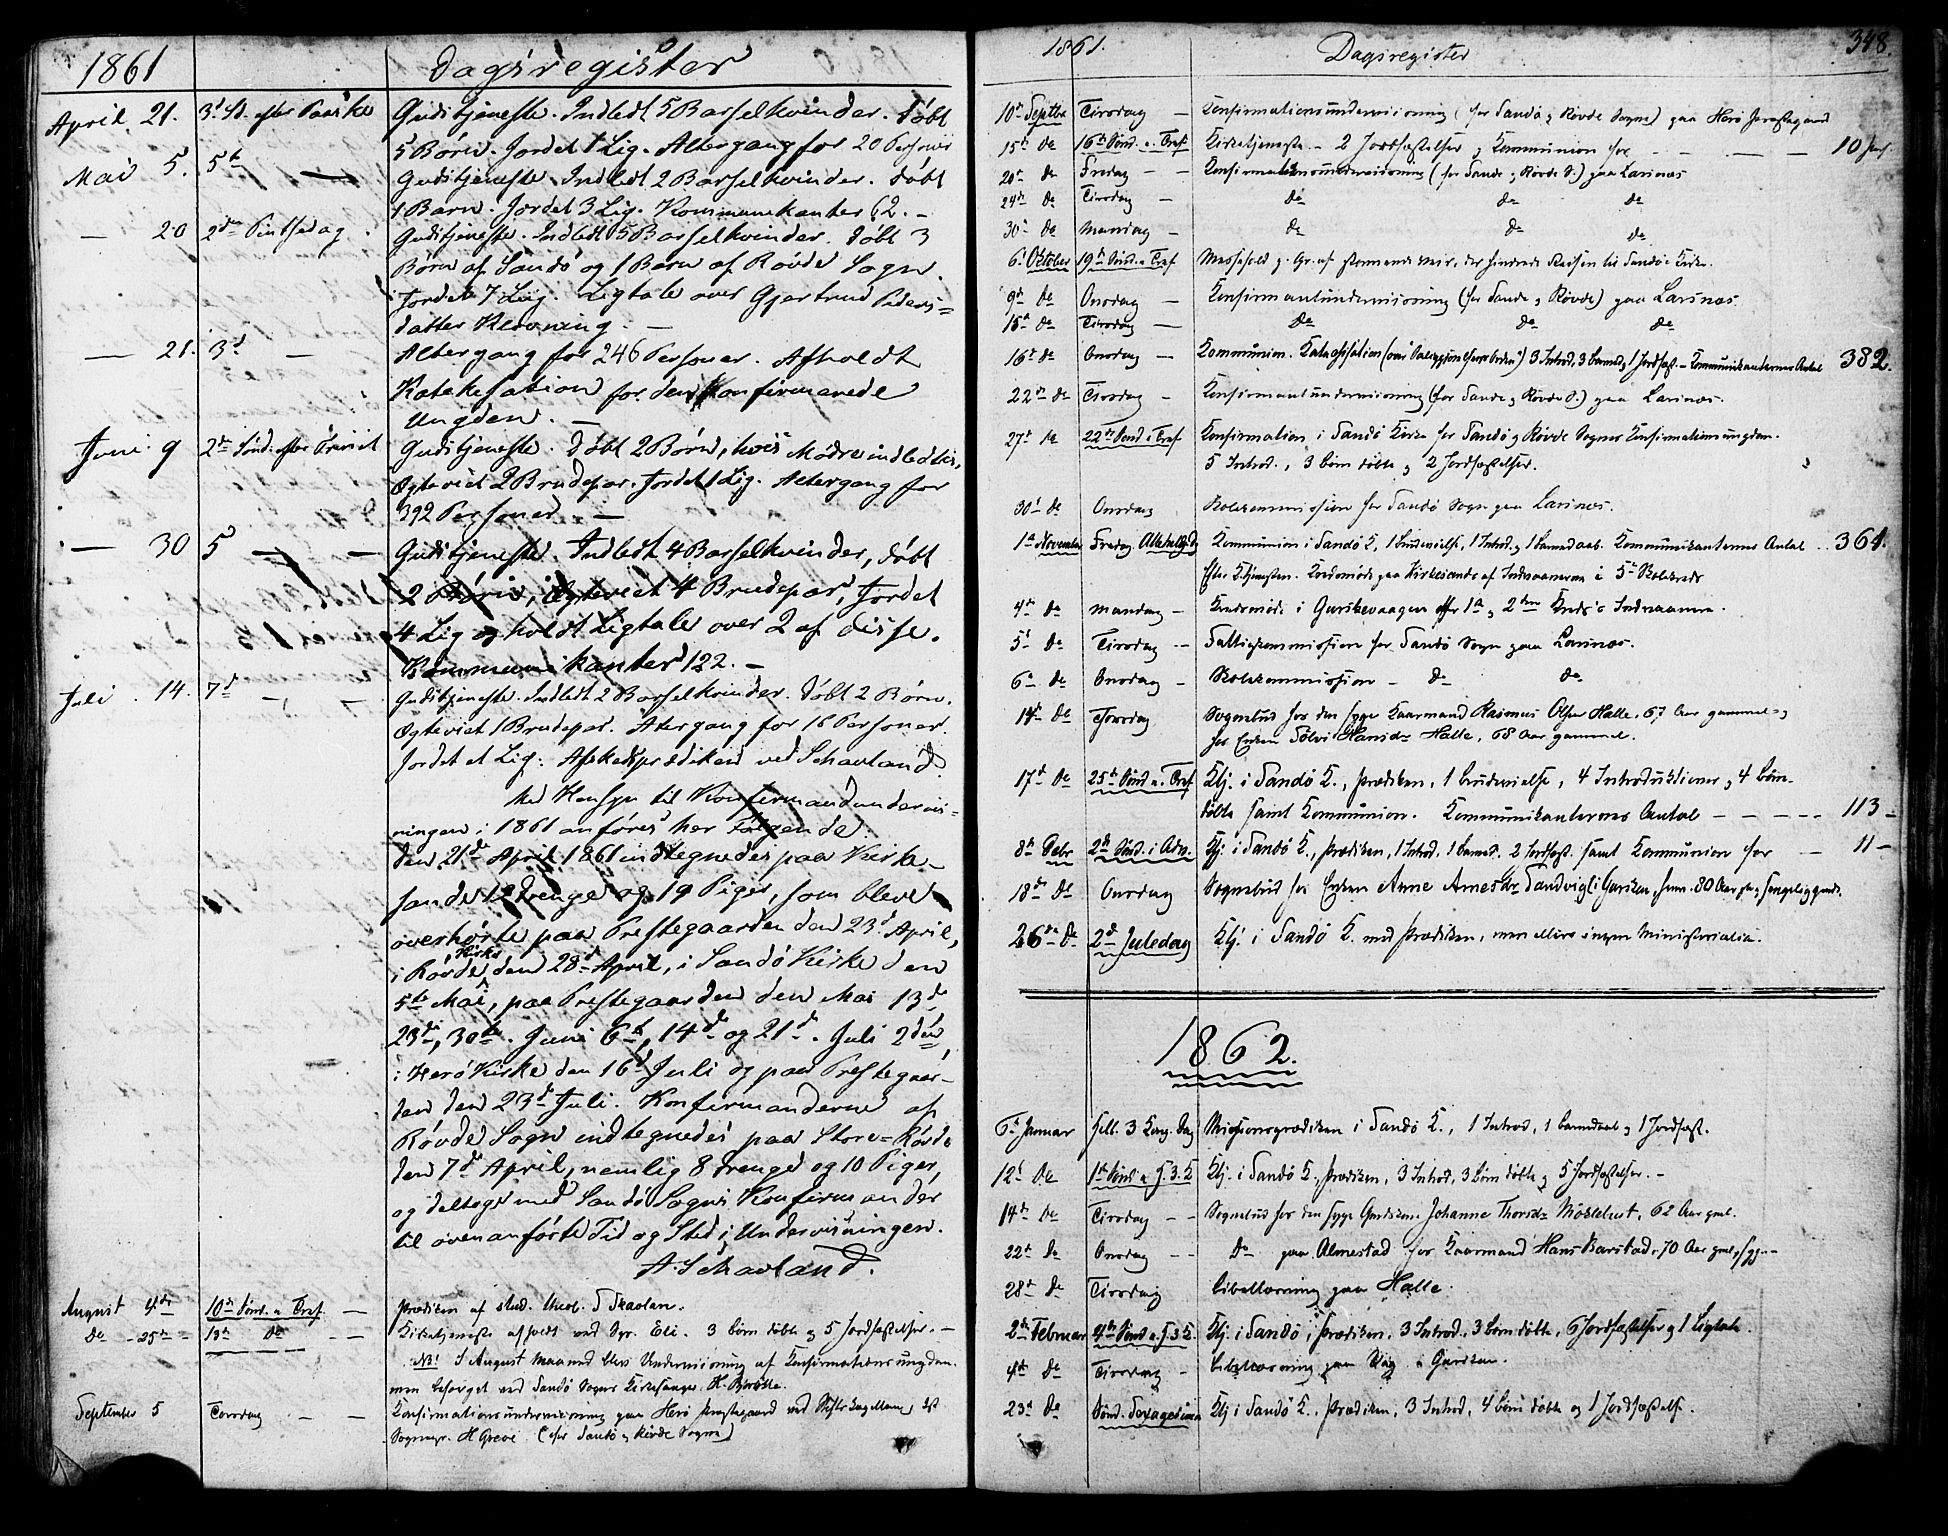 1861 Dagsregister
April 21. 3d S. efter Paaske Gudstjeneste. Indledt 5 Barselkvinder. Døbt
5 Børn. Jordet 1 Lig. Altergang for 20 Personer
Mai 5. 5te — Gudstjeneste. Indledt 2 Barselkvinder. Døbt
1 Barn. Jordet 3 Lig. Kommunikanter 62. —
— 20 2den Pintsedag. Gudstjeneste. Indledt 5 Barselkvinder. Døbt 3
Børn af Sandø og 1 Barn af Røvde Sogn.
Jordet 7 Lig. Ligtale over Gjertrud Peders=
datter Kleovning. —
— 21. 3d — Altergang for 246 Personer. Afholdt
Katekesation for den konfirmerede
Ungdom. —
Juni 9 2den Sønd. efter Trinit Gudstjeneste. Døbt 2 Børn, hvis Mødre indledtes,
Ægteviet 2 Brudepar. Jordet 1 Lig. Altergang for
392 Personer —
— 30 5 — — Gudstjeneste. Indledt 4 Barselkvinder, døbt
2 Børn, Ægteviet 4 Brudepar, Jordet
4 Lig og holdt Ligtale over 2 af disse.
Kommunikanter 122. —
Juli 14. 7d — — Gudstjeneste. Indledt 2 Barselkvinder. Døbt 2 Børn.
Ægteviet 1 Brudepar. Altergang for 16 Personer.
Jordet et Lig. Afskedsprædiken ved Schavland.
Med Hensyn til Konfirmandundervis=
ningen i 1861 anføres her Følgende:
Den 21de April 1861 indtegnedes paa Kirke-
sande 12 Drenge og 19 Piger, som bleve
overhørte paa Prestegaarden den 23d April,
i Røvde Kirke den 28d April, i Sandø Kirke den
5te Mai, paa Prestegaarden den Mai 13de
23de, 30te. Juni 6te, 14de og 21de. Juli 2den,
i Herø Kirke den 16d Juli og paa Prestegaar-
den den 23d Juli. Konfirmanderne af
Røvde Sogn indtegnedes paa Store=Røvde
den 7d April, nemlig 8 Drenge og 10 Piger,
og deltoge med Sandø Sogns Konfirmander
til ovenanførte Tid og Sted i Undervisningen.
A. Schavland.
August 4de 10de Sønd. e. Tref. — Prædiken af stud. theol. Skavlan.
de 25de 13de de — Kirketjeneste afholdt ved Sgr. Eli. 3 børn døbte og 5 Jordfæstelser. —
NB! I August Maaned blev Undervisning af Konfirmationsungdom-
men besørget ved Sandø Sogns Kirkesanger
September 5 Torsdag — — Konfirmationsundervisning paa Herø Præstegaard ved
Sognepr. H Greve. (for Sandø & Røvde Sogne)
1861. Dagsregister 348
10de Septbr Tirsdag — Konfirmationsundervisning (for Sandø & Røvde Sogne) paa Herø Præstegaard
15de de 16de Sønd. e. Tref. Kirketjeneste — 2 Jordfæstelser & Kommunion for — — — 10 Pers.
20de de Fredag — — Konfirmationsundervisning (for Sande & Røvde S.) paa Larsnæs
24de de Tirsdag — de de de
30te de Mandag — de de de
6te Oktober 19de Sønd. e. Tref Messefald p. Gr. af stormende Veir, der hindrede Reisen til Sandø Kirke.
9de de Onsdag — Konfirmantundervisning (for Sande & Røvde) paa Larsnæs
15de de Tirsdag — de de de
16de de Onsdag — Kommunion. Katekisation 3 Introd. 3 barned. 1 Jordfæst. — Kommunikanternes Antal 382.
22de de Tirsdag — Konfirmantundervisning (for Sande & Røvde S.) paa Larsnæs.
27de de 22de Sønd. e. Tref Konfirmation i Sandø Kirke for Sandø & Røvde Sognes Konfirmationsungdom.
5 Introd., 3 børn døbte & 2 Jordfæstelser.
30te de Onsdag Skolekommission for Sandø Sogn paa Larsnæs.
1ste November Fredag Allehelg.dg Kommunion i Sandø K., 1 brudevielse, 1 Introd. & 1 barnedaab. Kommunikanternes Antal .. 361.
Efter Ktjenesten. Kredsmøde paa Kirkesande af Indvaanerne i 5te Skolekreds
4de de Mandag — Kredsmøde i Gurskevaagen for 1ste & 2den Kreds's Indvaanere.
5te de Tirsdag — Fattigkommission for Sandø Sogn paa Larsnæs.
6te de Onsdag — Skolekommission — de de
14de de Torsdag Sognebud for den syge Kaarmand Rasmus Olsen Halle, 67 Aar gammel &
for Enken Sølvi Hansdr Halle, 68 Aar gammel.
17de de 25de Sønd. e. Tref Ktj. i Sandø K., Prædiken, 1 brudevielse, 4 Introduktioner & 4 børn
døbte samt Kommunion. Kommunikanternes Antal — — — — 113 —
8de Debr 2den Sønd. i Adv. Ktj. i Sandø K., Prædiken, 1 Introd. 1 barned. 2 Jordfæst. samt Kommunion for — 11 —
18de de Onsdag Sognebud for Enken Anne Arnesdr Sandvig i Gursken, henv. 80 Aar gl. & sengeliggende.
26de de 2den Juledag Ktj. i Sandø K. med Prædiken, men ellers ingen Ministerialia.
1862.
6te Januar Hell. 3 Kong. Dag Missionsprædiken i Sandø K., 1 Introd, 1 barnedaab & 1 Jordfæst.
12te de 1ste Sønd e. H. 3. K Ktj. i Sandø K., Prædiken, 3 Introd, 3 børn døbte & 5 Jordfæstelser. —
14de de Tirsdag — — Sognebud for den syge Johanne Thorsdr Moltehust, 62 Aar gml.
22de de Onsdag — — de paa Almestad for Kaarmand Hans Barstad, 70 Aar gml, syg. —
28de de Tirsdag Bibellæsning paa Halle.
2den Februar 4de Sønd e. H. 3 K. Ktj. i Sandø, Prædiken, 3 Introd., 3 børn døbte, 6 Jordfæstelser & 1 Ligtale.
4de de Tirsdag — Bibellæsning paa i Gursken.
23de de Sønd. Sexagesima Ktj i Sandø K., Prædiken, 3 Introd, 4 børn døbte og 1 Jordfæstelse.